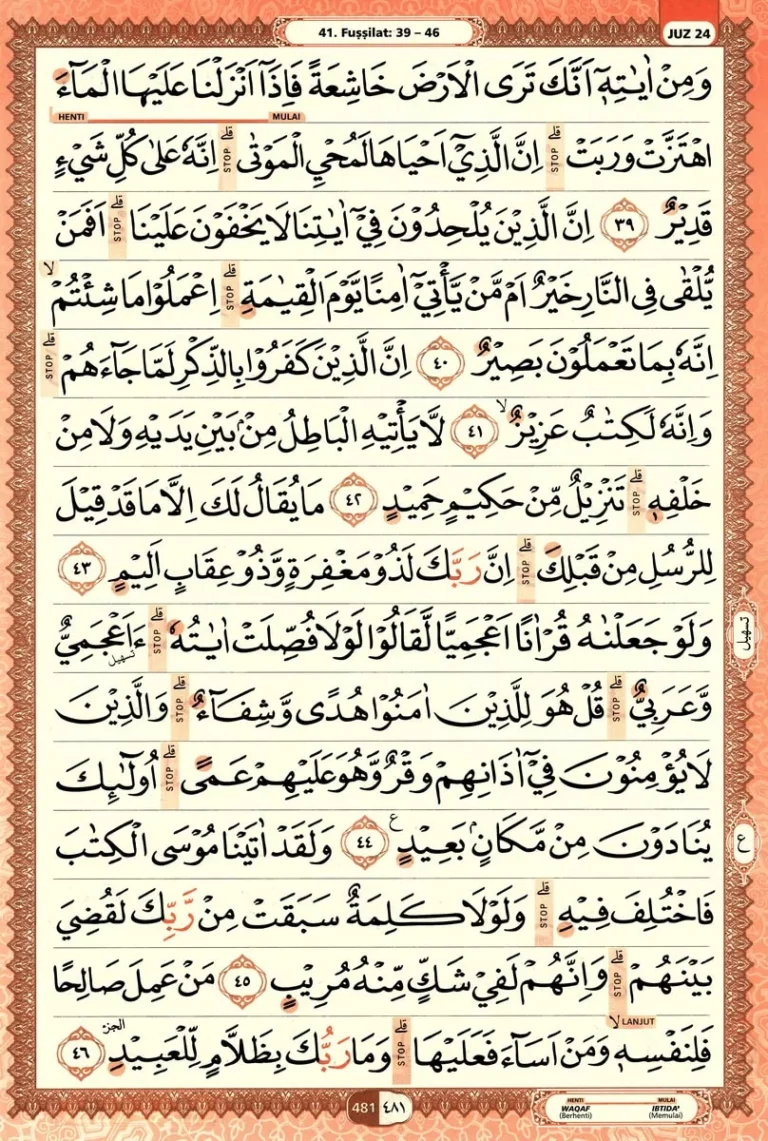 41. Fuṣṣilat: 39 – 46
JUZ 24
وَمِنْ اٰيٰتِهٖٓ اَنَّكَ تَرَى الْاَرْضَ خَاشِعَةً فَاِذَآ اَنْزَلْنَا عَلَيْهَا الْمَاۤءَ
HENTI MULAI
اهْتَزَّتْ وَرَبَتْ ۗ STOP اِنَّ الَّذِيْٓ اَحْيَاهَا لَمُحْيِ الْمَوْتٰى ۗ STOP اِنَّهٗ عَلٰى كُلِّ شَيْءٍ
قَدِيْرٌ ٣٩ اِنَّ الَّذِيْنَ يُلْحِدُوْنَ فِيْٓ اٰيٰتِنَا لَا يَخْفَوْنَ عَلَيْنَا ۗ STOP اَفَمَنْ
يُّلْقٰى فِى النَّارِ خَيْرٌ اَمْ مَّنْ يَّأْتِيْٓ اٰمِنًا يَّوْمَ الْقِيٰمَةِ ۗ STOP اِعْمَلُوْا مَا شِئْتُمْ ۙ
اِنَّهٗ بِمَا تَعْمَلُوْنَ بَصِيْرٌ ٤٠ اِنَّ الَّذِيْنَ كَفَرُوْا بِالذِّكْرِ لَمَّا جَاۤءَهُمْ ۗ STOP
وَاِنَّهٗ لَكِتٰبٌ عَزِيْزٌ ۙ ٤١ لَّا يَأْتِيْهِ الْبَاطِلُ مِنْۢ بَيْنِ يَدَيْهِ وَلَا مِنْ
خَلْفِهٖ ۗ STOP تَنْزِيْلٌ مِّنْ حَكِيْمٍ حَمِيْدٍ ٤٢ مَا يُقَالُ لَكَ اِلَّا مَا قَدْ قِيْلَ
لِلرُّسُلِ مِنْ قَبْلِكَ ۗ STOP اِنَّ رَبَّكَ لَذُوْ مَغْفِرَةٍ وَّذُوْ عِقَابٍ اَلِيْمٍ ٤٣
وَلَوْ جَعَلْنٰهُ قُرْاٰنًا اَعْجَمِيًّا لَّقَالُوْا لَوْلَا فُصِّلَتْ اٰيٰتُهٗ ۗ STOP ءَاَعْجَمِيٌّ
تسهيل
تسهيل
وَّعَرَبِيٌّ ۗ STOP قُلْ هُوَ لِلَّذِيْنَ اٰمَنُوْا هُدًى وَّشِفَاۤءٌ ۗ STOP وَالَّذِيْنَ
لَا يُؤْمِنُوْنَ فِيْٓ اٰذَانِهِمْ وَقْرٌ وَّهُوَ عَلَيْهِمْ عَمًى ۗ STOP اُولٰۤىِٕكَ
يُنَادَوْنَ مِنْ مَّكَانٍۢ بَعِيْدٍ ع ٤٤ وَلَقَدْ اٰتَيْنَا مُوْسَى الْكِتٰبَ
ع
فَاخْتُلِفَ فِيْهِ ۗ STOP وَلَوْلَا كَلِمَةٌ سَبَقَتْ مِنْ رَّبِّكَ لَقُضِيَ
بَيْنَهُمْ ۗ STOP وَاِنَّهُمْ لَفِيْ شَكٍّ مِّنْهُ مُرِيْبٍ ٤٥ مَنْ عَمِلَ صَالِحًا
لا LANJUT
فَلِنَفْسِهٖ وَمَنْ اَسَاۤءَ فَعَلَيْهَا ۗ STOP وَمَا رَبُّكَ بِظَلَّامٍ لِّلْعَبِيْدِ الجزء ٤٦
481 ٤٨١
HENTI MULAI
WAQAF IBTIDA'
(Berhenti) (Memulai)